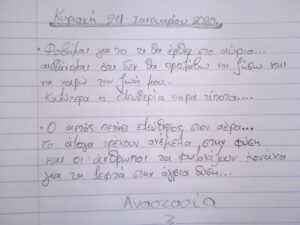 Κυριακή 2 Ιανουαρίου 2020
• Φοβάμαι για το τι θα έρθει στο αύριο...
αισθάνομαι ότι δεν θα προλάβω να ζήσω και
να χαρώ την ζωή μου...
Καλύτερα η ελευθερία παρά τίποτα....
• Ο αετός πετάει ελεύθερος στον αέρα...
το άλογα τρέχουν ανέμελα στην φύση
και οι άνθρωποι τα φυλακίζουν μονάχα
για τα λεφτά στην άγρια δύση...
Αναστασία